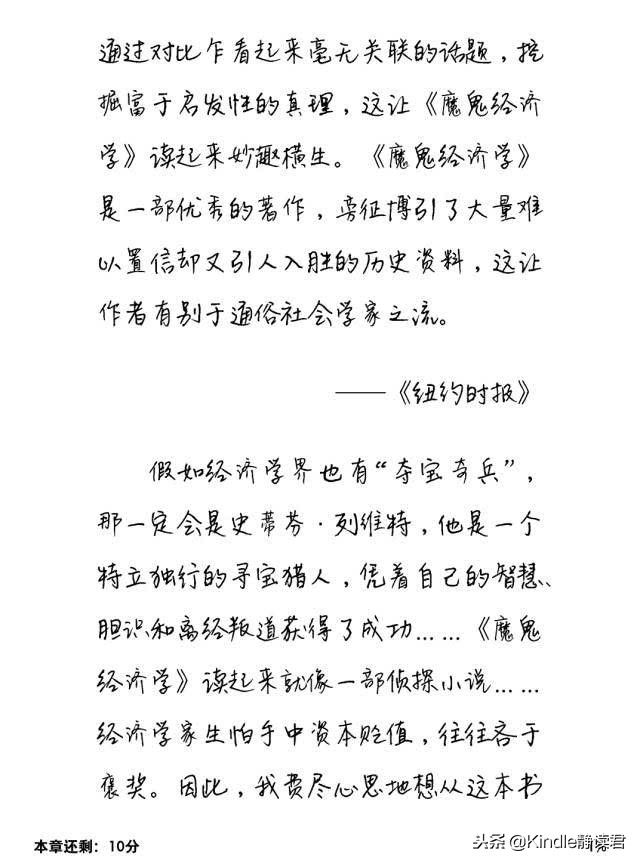 通过对比乍看起来毫无关联的话题，挖
掘富于启发性的真理，这让《魔鬼经济
学》读起来妙趣横生。《魔鬼经济学》
是一部优秀的著作，旁征博引了大量难
以置信却又引人入胜的历史资料，这让
作者有别于通俗社会学家之流。
——《纽约时报》
假如经济学界也有“夺宝奇兵”，
那一定会是史蒂芬·列维特，他是一个
特立独行的寻宝猎人，凭着自己的智慧、
胆识和离经叛道获得了成功……《魔鬼
经济学》读起来就像一部侦探小说……
经济学家生怕手中资本贬值，往往吝于
褒奖。因此，我费尽心思地想从这本书
本章还剩：10分
头条@Kindle静读君